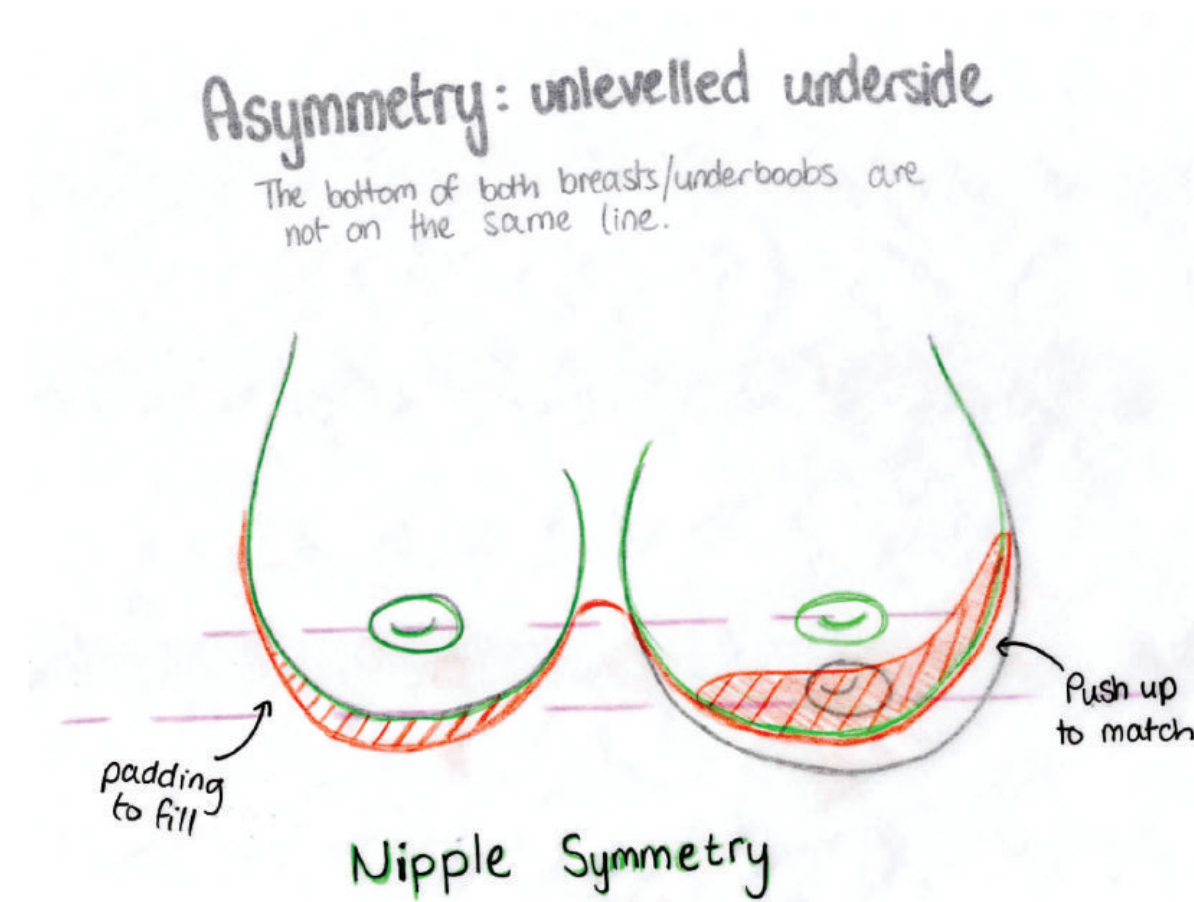 Asymmetry: unlevelled underside
The bottom of both breasts/underboobs are
not on the same line.
Push up
to match
padding
to fill
Nipple Symmetry